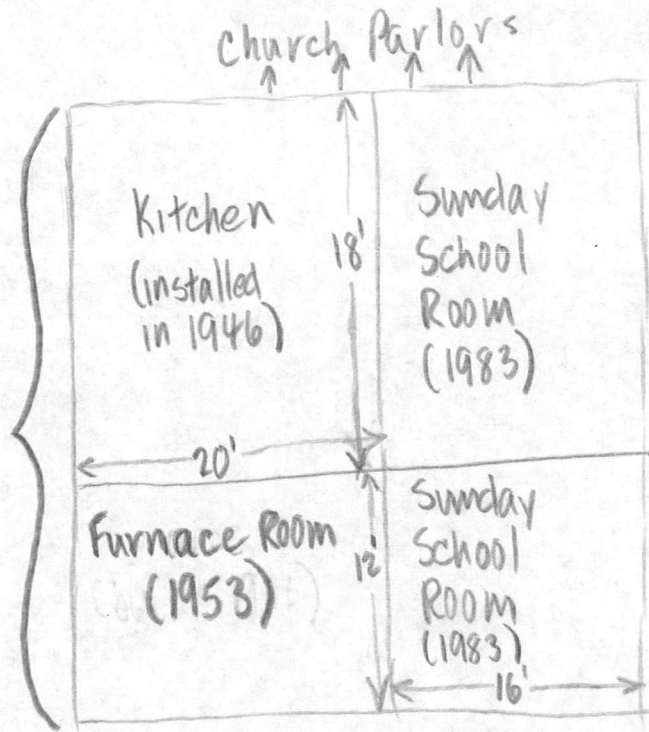 Church Parlors
Kitchen
(installed
in 1946)
18'
Sunday
School
Room
(1983)
20'
Furnace Room
(1953)
12'
Sunday
School
Room
(1983)
16'